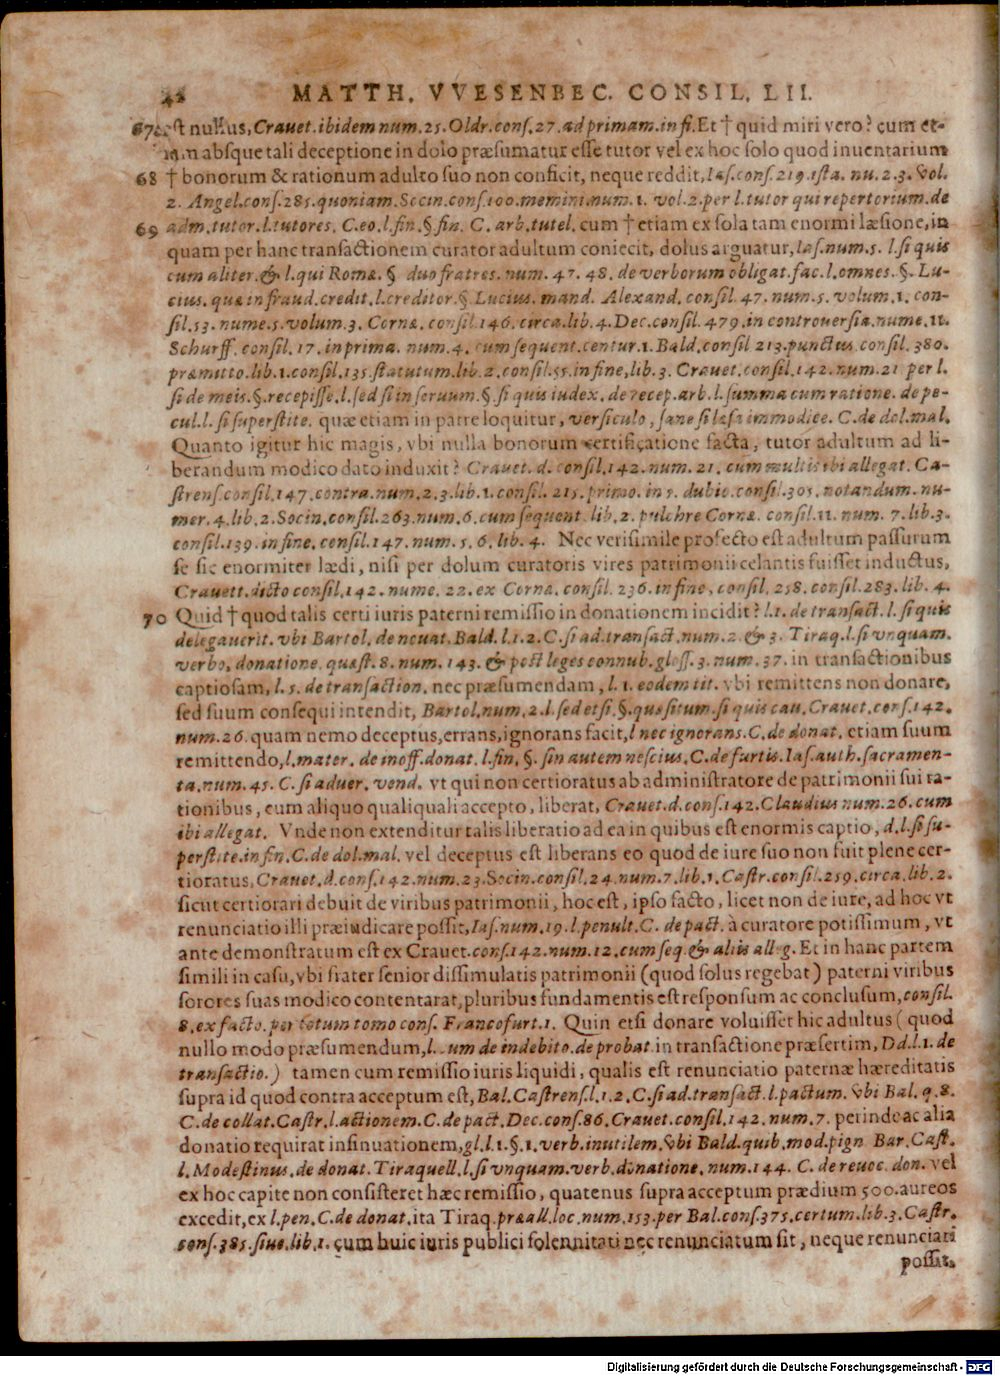 42 MATTH. VVESENBEC. CONSIL. LII.
67 est nullus, Crauet. ibidem num. 25. Oldr. cons. 27. ad primam. in fi. Et † quid miri vero? cum et-
iam absque tali deceptione in dolo præsumatur esse tutor vel ex hoc solo quod inuentarium
68 † bonorum & rationum adulto suo non conficit, neque reddit, Ias. cons. 219. ista. nu. 2. 3. vol.
2. Angel. cons. 285. quoniam. Socin. cons. 100. memini num. 1. vol. 2. per l. tutor qui repertorium. de
69 adm. tutor. l. tutores. C. eo. l. fin. §. fin. C. arb. tutel. cum † etiam ex sola tam enormi læsione, in
quam per hanc transactionem curator adultum coniecit, dolus arguatur, Ias. num. 5. l. si quis
cum aliter. & l. qui Romæ. § duo fratres. num. 47. 48. de verborum obligat. fac. l. omnes. §. Lu-
cius. quæ in fraud. credit. l. creditor. §. Lucius. mand. Alexand. consil. 47. num. 5. volum. 1. con-
sil. 53. nume. 5. volum. 3. Cornæ. consil. 146. circa. lib. 4. Dec. consil. 479. in controuersia. nume. 11.
Schurff. consil. 17. in prima. num. 4. cum sequent. centur. 1. Bald. consil 213. punctus. consil. 380.
præmitto. lib. 1. consil. 135. statutum. lib. 2. consil. 55. in fine, lib. 3. Crauet. consil. 142. num. 21 per l.
si de meis. §. recepisse, l. sed si in seruum. §. si quis iudex. de recep. arb. l. summa cum ratione. de pe-
cul. l. si superstite. quæ etiam in patre loquitur, versiculo, sane si læsa immodice. C. de dol. mal.
Quanto igitur hic magis, vbi nulla bonorum certificatione facta, tutor adultum ad li-
berandum modico dato induxit? Crauet. d. consil. 142. num. 21. cum multis ibi allegat. Ca-
strens. consil. 147. contra. num. 2. 3. lib. 1. consil. 215. primo. in 5. dubio. consil. 305. notandum. nu-
mer. 4. lib. 2. Socin. consil. 263. num. 6. cum sequent. lib. 2. pulchre Cornæ. consil. 11. num. 7. lib. 3.
consil. 139. in fine. consil. 147. num. 5. 6. lib. 4. Nec verisimile profecto est adultum passurum
se sic enormiter lædi, nisi per dolum curatoris vires patrimonii celantis fuisset inductus,
Crauett. dicto consil. 142. nume. 22. ex Cornæ. consil. 236. in fine, consil. 258. consil. 283. lib. 4.
70 Quid † quod talis certi iuris paterni remissio in donationem incidit? l. 1. de transact. l. si quis
delegauerit. vbi Bartol. de nouat. Bald. l. 1. 2. C. si ad. transact. num. 2. & 3. Tiraq. l. si vnquam.
verbo, donatione. quæst. 8. num. 143. & post leges connub. gloss. 3. num. 37. in transactionibus
captiosam, l. 5. de transaction. nec præsumendam, l. 1. eodem tit. vbi remittens non donare,
sed suum consequi intendit, Bartol. num. 2. l. sed et si. §. quæsitum. si quis cau. Crauet. cons. 142.
num. 26. quam nemo deceptus, errans, ignorans facit, l nec ignorans. C. de donat. etiam suum
remittendo, l. mater. de inoff. donat. l. fin. §. sin autem nescius. C. de furtis. Ias. auth. sacramen-
ta. num. 45. C. si aduer. vend. vt qui non certioratus ab administratore de patrimonii sui ra-
tionibus, eum aliquo qualiquali accepto, liberat, Crauet. d. cons. 142. Claudius num. 26. cum
ibi allegat. Vnde non extenditur talis liberatio ad ea in quibus est enormis captio, d. l. si su-
perstite. in fin. C. de dol. mal. vel deceptus est liberans eo quod de iure suo non fuit plene cer-
tioratus, Crauet. d. cons. 142. num. 23. Socin. consil. 24. num. 7. lib. 1. Castr. consil. 259. circa. lib. 2.
sicut certiorari debuit de viribus patrimonii, hoc est, ipso facto, licet non de iure, ad hoc vt
renunciatio illi præiudicare possit, Ias. num. 19. l. penult. C. de pact. à curatore potissimum, vt
ante demonstratum est ex Crauet. cons. 142. num. 12. cum seq. & aliis alleg. Et in hanc partem
simili in casu, vbi frater senior dissimulatis patrimonii (quod solus regebat) paterni viribus
sorores suas modico contentarat, pluribus fundamentis est responsum ac conclusum, consil.
8. ex facto. per totum tomo cons. Francofurt. 1. Quin etsi donare voluisset hic adultus (quod
nullo modo præsumendum, l. cum de indebito. de probat. in transactione præsertim, Dd. l. 1. de
transactio.) tamen cum remissio iuris liquidi, qualis est renunciatio paternæ hæreditatis
supra id quod contra acceptum est, Bal. Castrens. l. 1. 2. C. si ad. transact. l. pactum. vbi Bal. q. 8.
C. de collat. Castr. l. actionem. C. de pact. Dec. cons. 86. Crauet. consil. 142. num. 7. perinde ac alia
donatio requirat insinuationem, gl. l. 1. §. 1. verb. inutilem. vbi Bald. quib. mod. pign. Bar. Cast.
l. Modestinus. de donat. Tiraquell. l. si vnquam. verb. donatione. num. 144. C. de reuoc. don. vel
ex hoc capite non consisteret hæc remissio, quatenus supra acceptum prædium 500. aureos
excedit, ex l. pen. C. de donat. ita Tiraq. præall. loc. num. 153. per Bal. cons. 375. certum. lib. 3. Castr.
cons. 385. siue. lib. 1. cum huic iuris publici solennitati nec renunciatum sit, neque renunciari
possit.
Digitalisierung gefördert durch die Deutsche Forschungsgemeinschaft - DFG